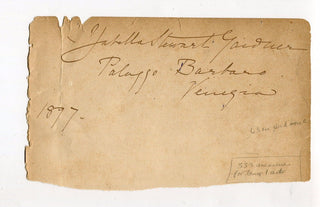 Ysabella Stewart Gardner
Palazzo Barbaro
Venezia
1897.